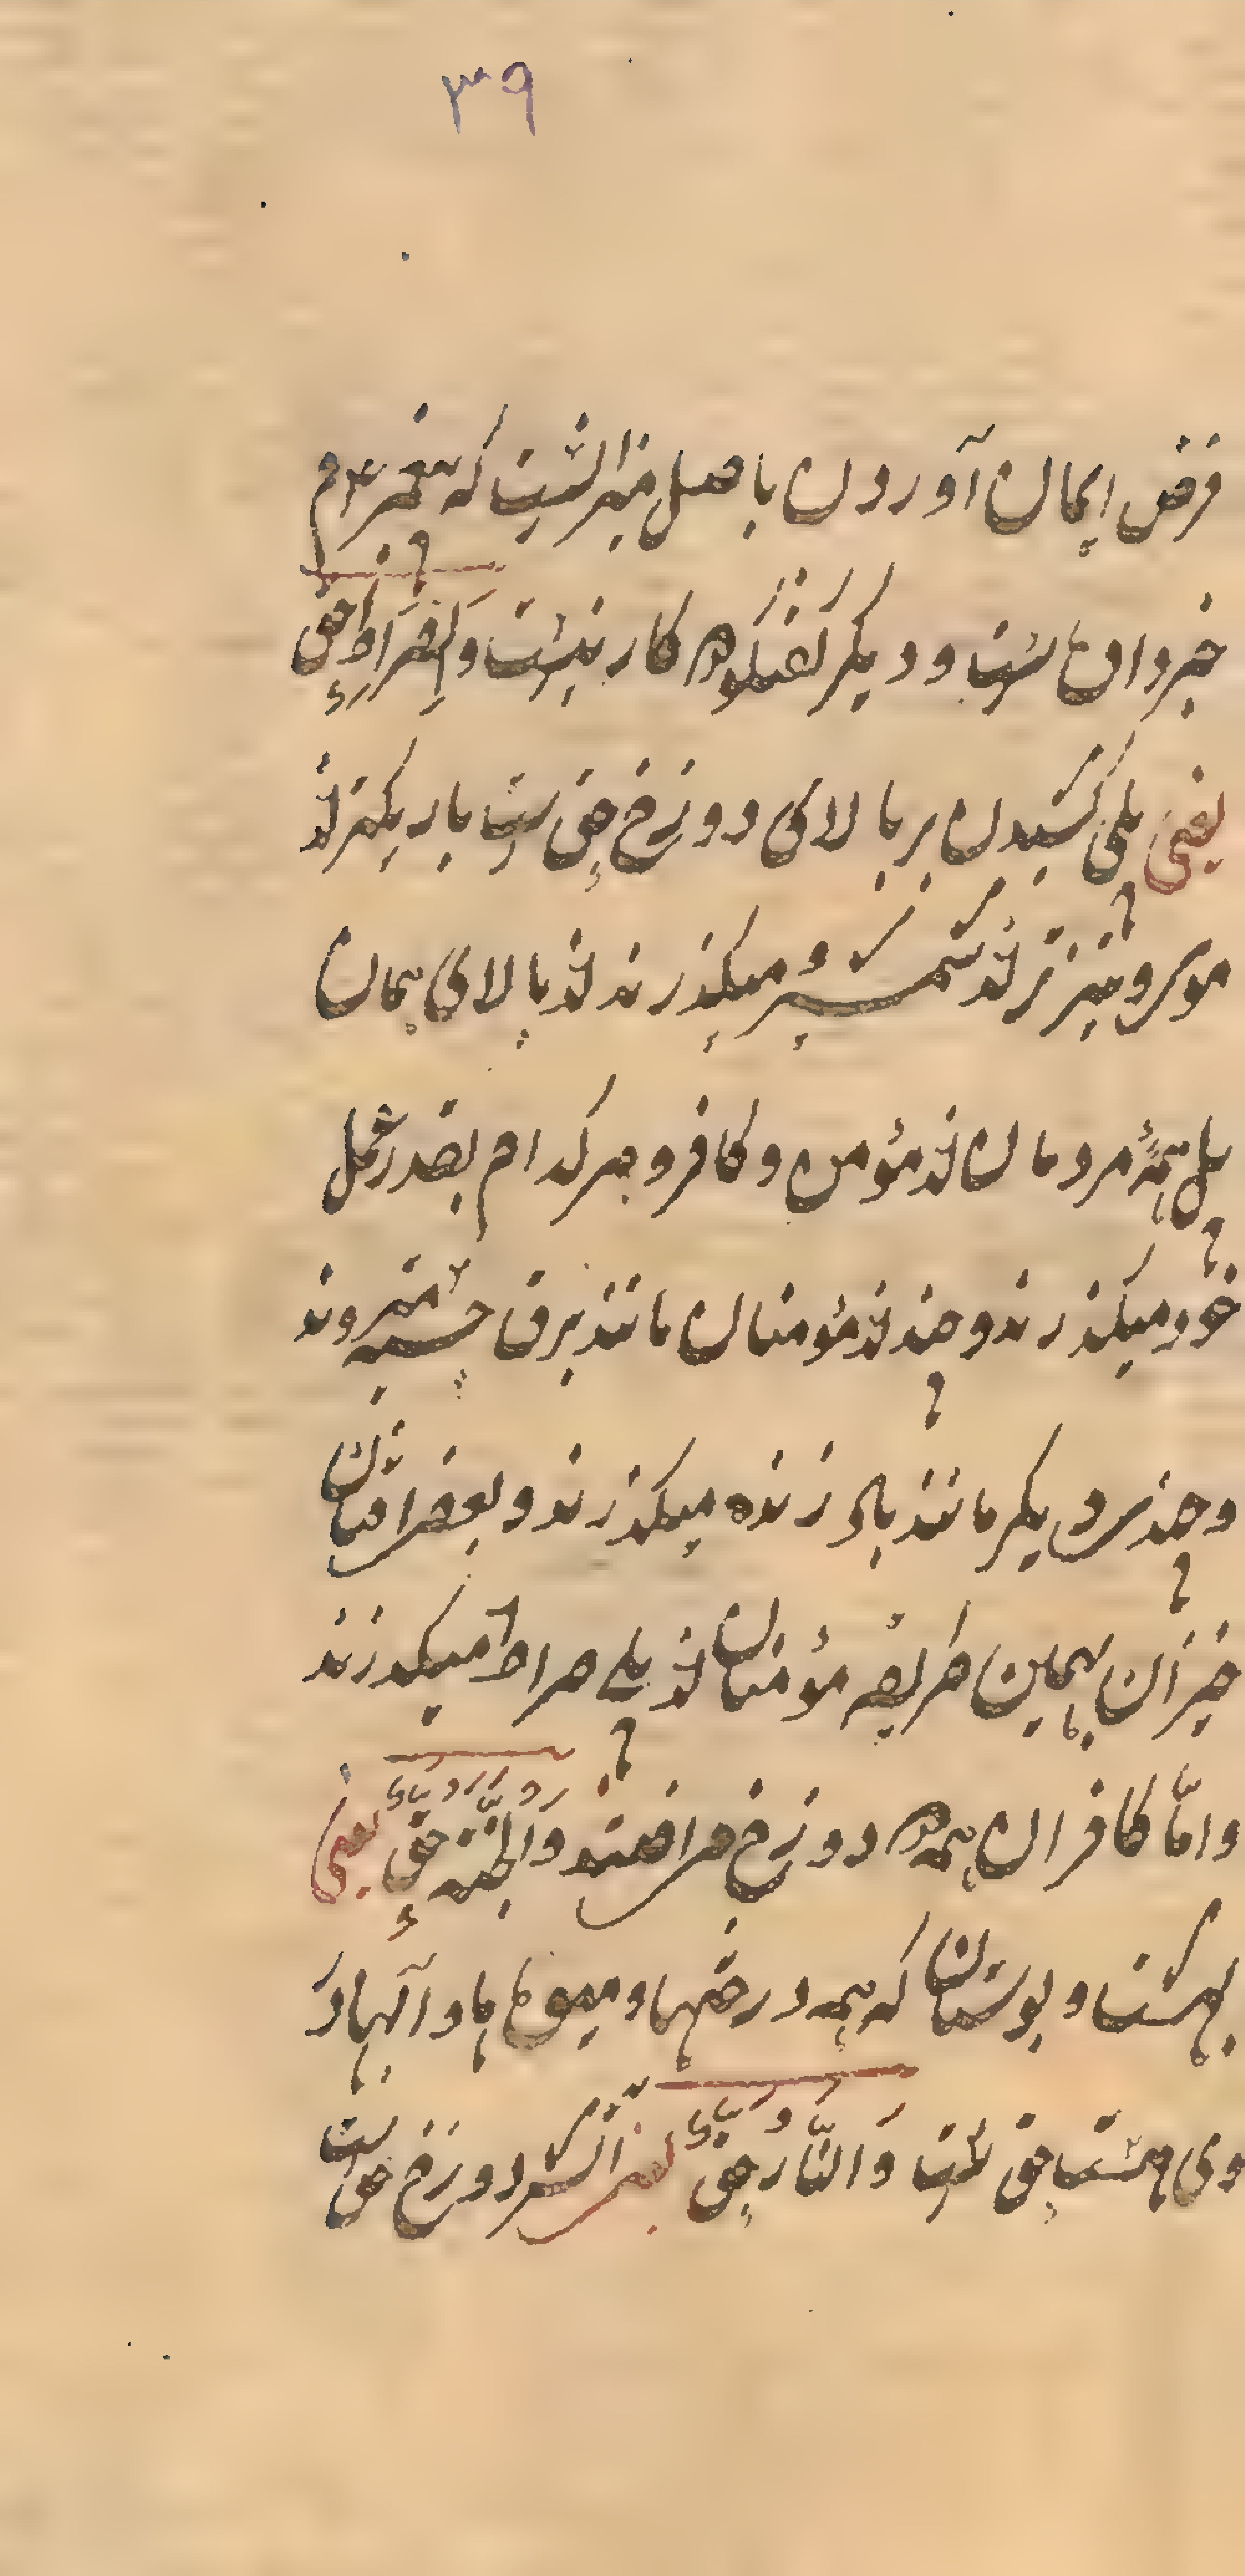 ۳۹
فرض ایمان آوردن باصل میزانست که پیغمبر ء م
خبر داده ست و دیگر گفتگوه کار نیست والصراط حق
یعنی پلی کشیدن بر بالای دوزخ حق ست باریکتر از
موی و تیزتر از شمشیر میگذرند از بالای همان
پل همهٔ مردمان از مؤمن و کافر و هر کدام بقدر عمل
خود میگذرند و چند از مؤمنان مانند برق جسته میروند
و چندی دیگر مانند باد زنده میگذرند و بعضی افتان
خیزان بهمین طریقه مؤمنان از پلی صراط میگذرند
وامّا کافران همه دوزخ می افتند وَالْجَنَّةُ حَقٌّ یعنی
بهشت و بوستان که همه درختها و میوه ها و آبها دَر
وی هست حق ست وَالنَّارُ حَقٌّ یعنی آتش دوزخ حق ست